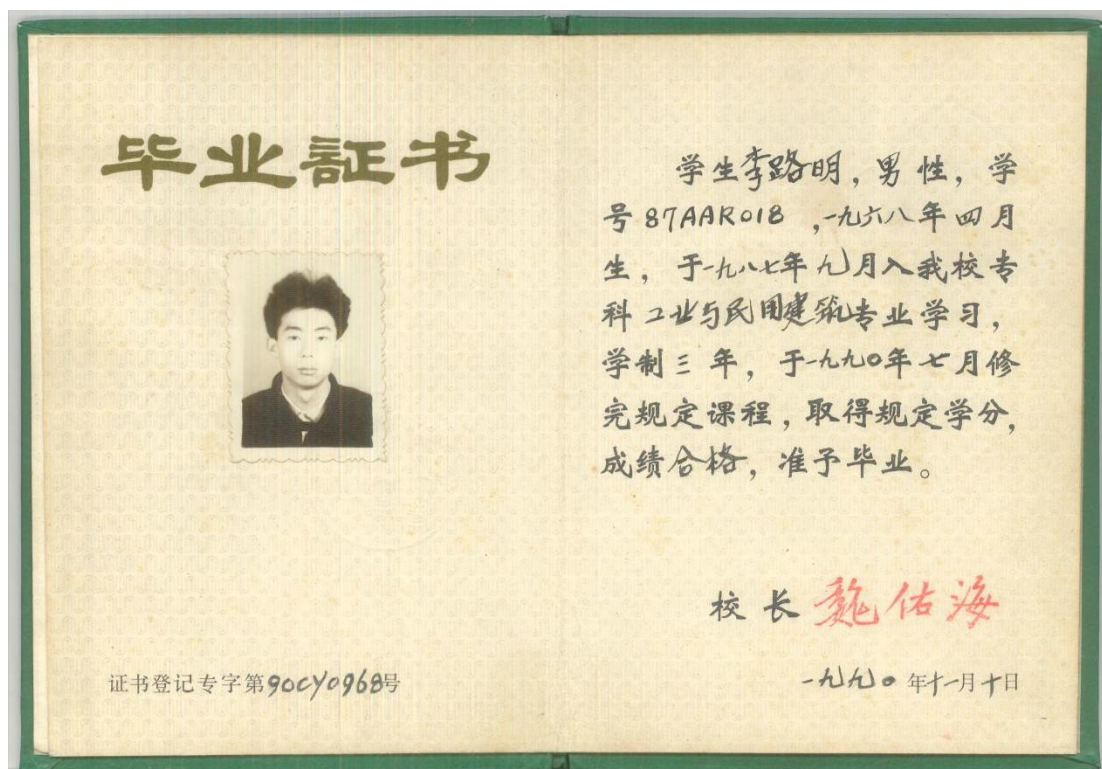 毕业証书
证书登记专字第90CY0968号
学生李路明，男性，学
号87AAR018，一九六八年四月
生，于一九八七年九月入我校专
科工业与民用建筑专业学习，
学制三年，于一九九〇年七月修
完规定课程，取得规定学分，
成绩合格，准予毕业。
校长魏佑海
一九九〇年十一月十日